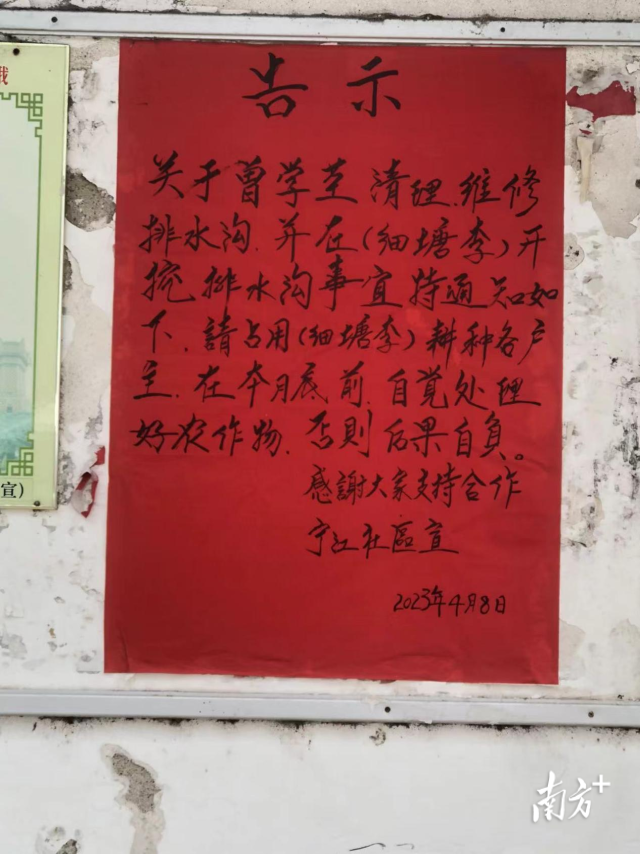 告示
关于曾学芝清理.维修
排水沟.并在(细塘李)开
挖排水沟事宜特通知如
下.請占用(细塘李)耕种各户
主.在本月底前.自覚处理
好农作物.否則后果自負。
感謝大家支持合作
宁江社區宣
2023年4月8日
宣)
南方+